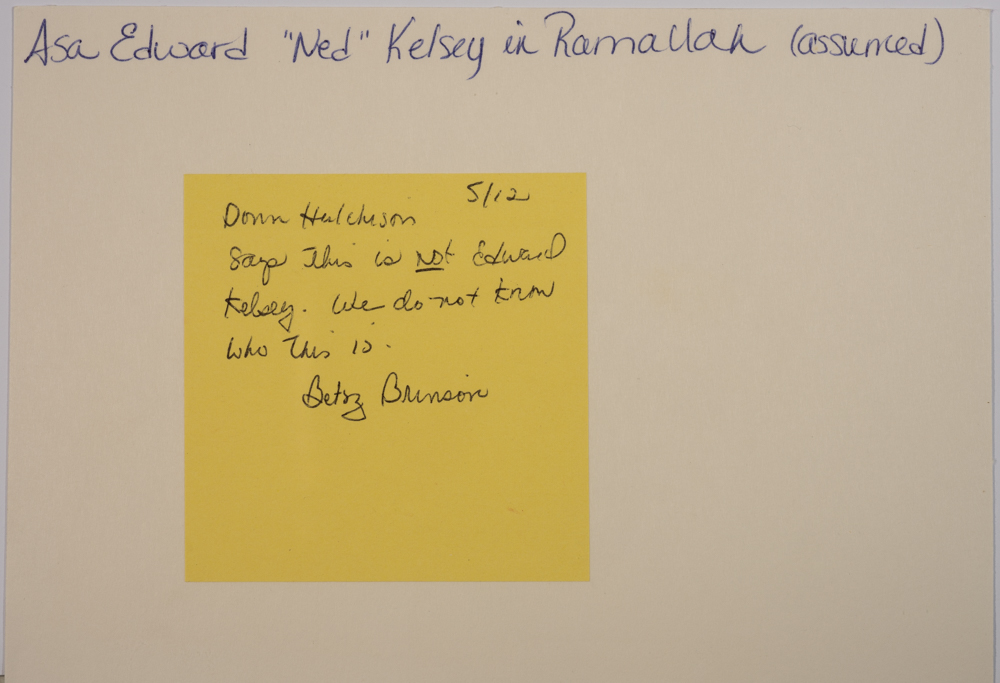 Asa Edward "Ned" Kelsey in Ramallah (assumed)
5/12
Donn Hutchison
Says This is not Edward
Kelsey. We do not know
who This is.
Betsy Brinson